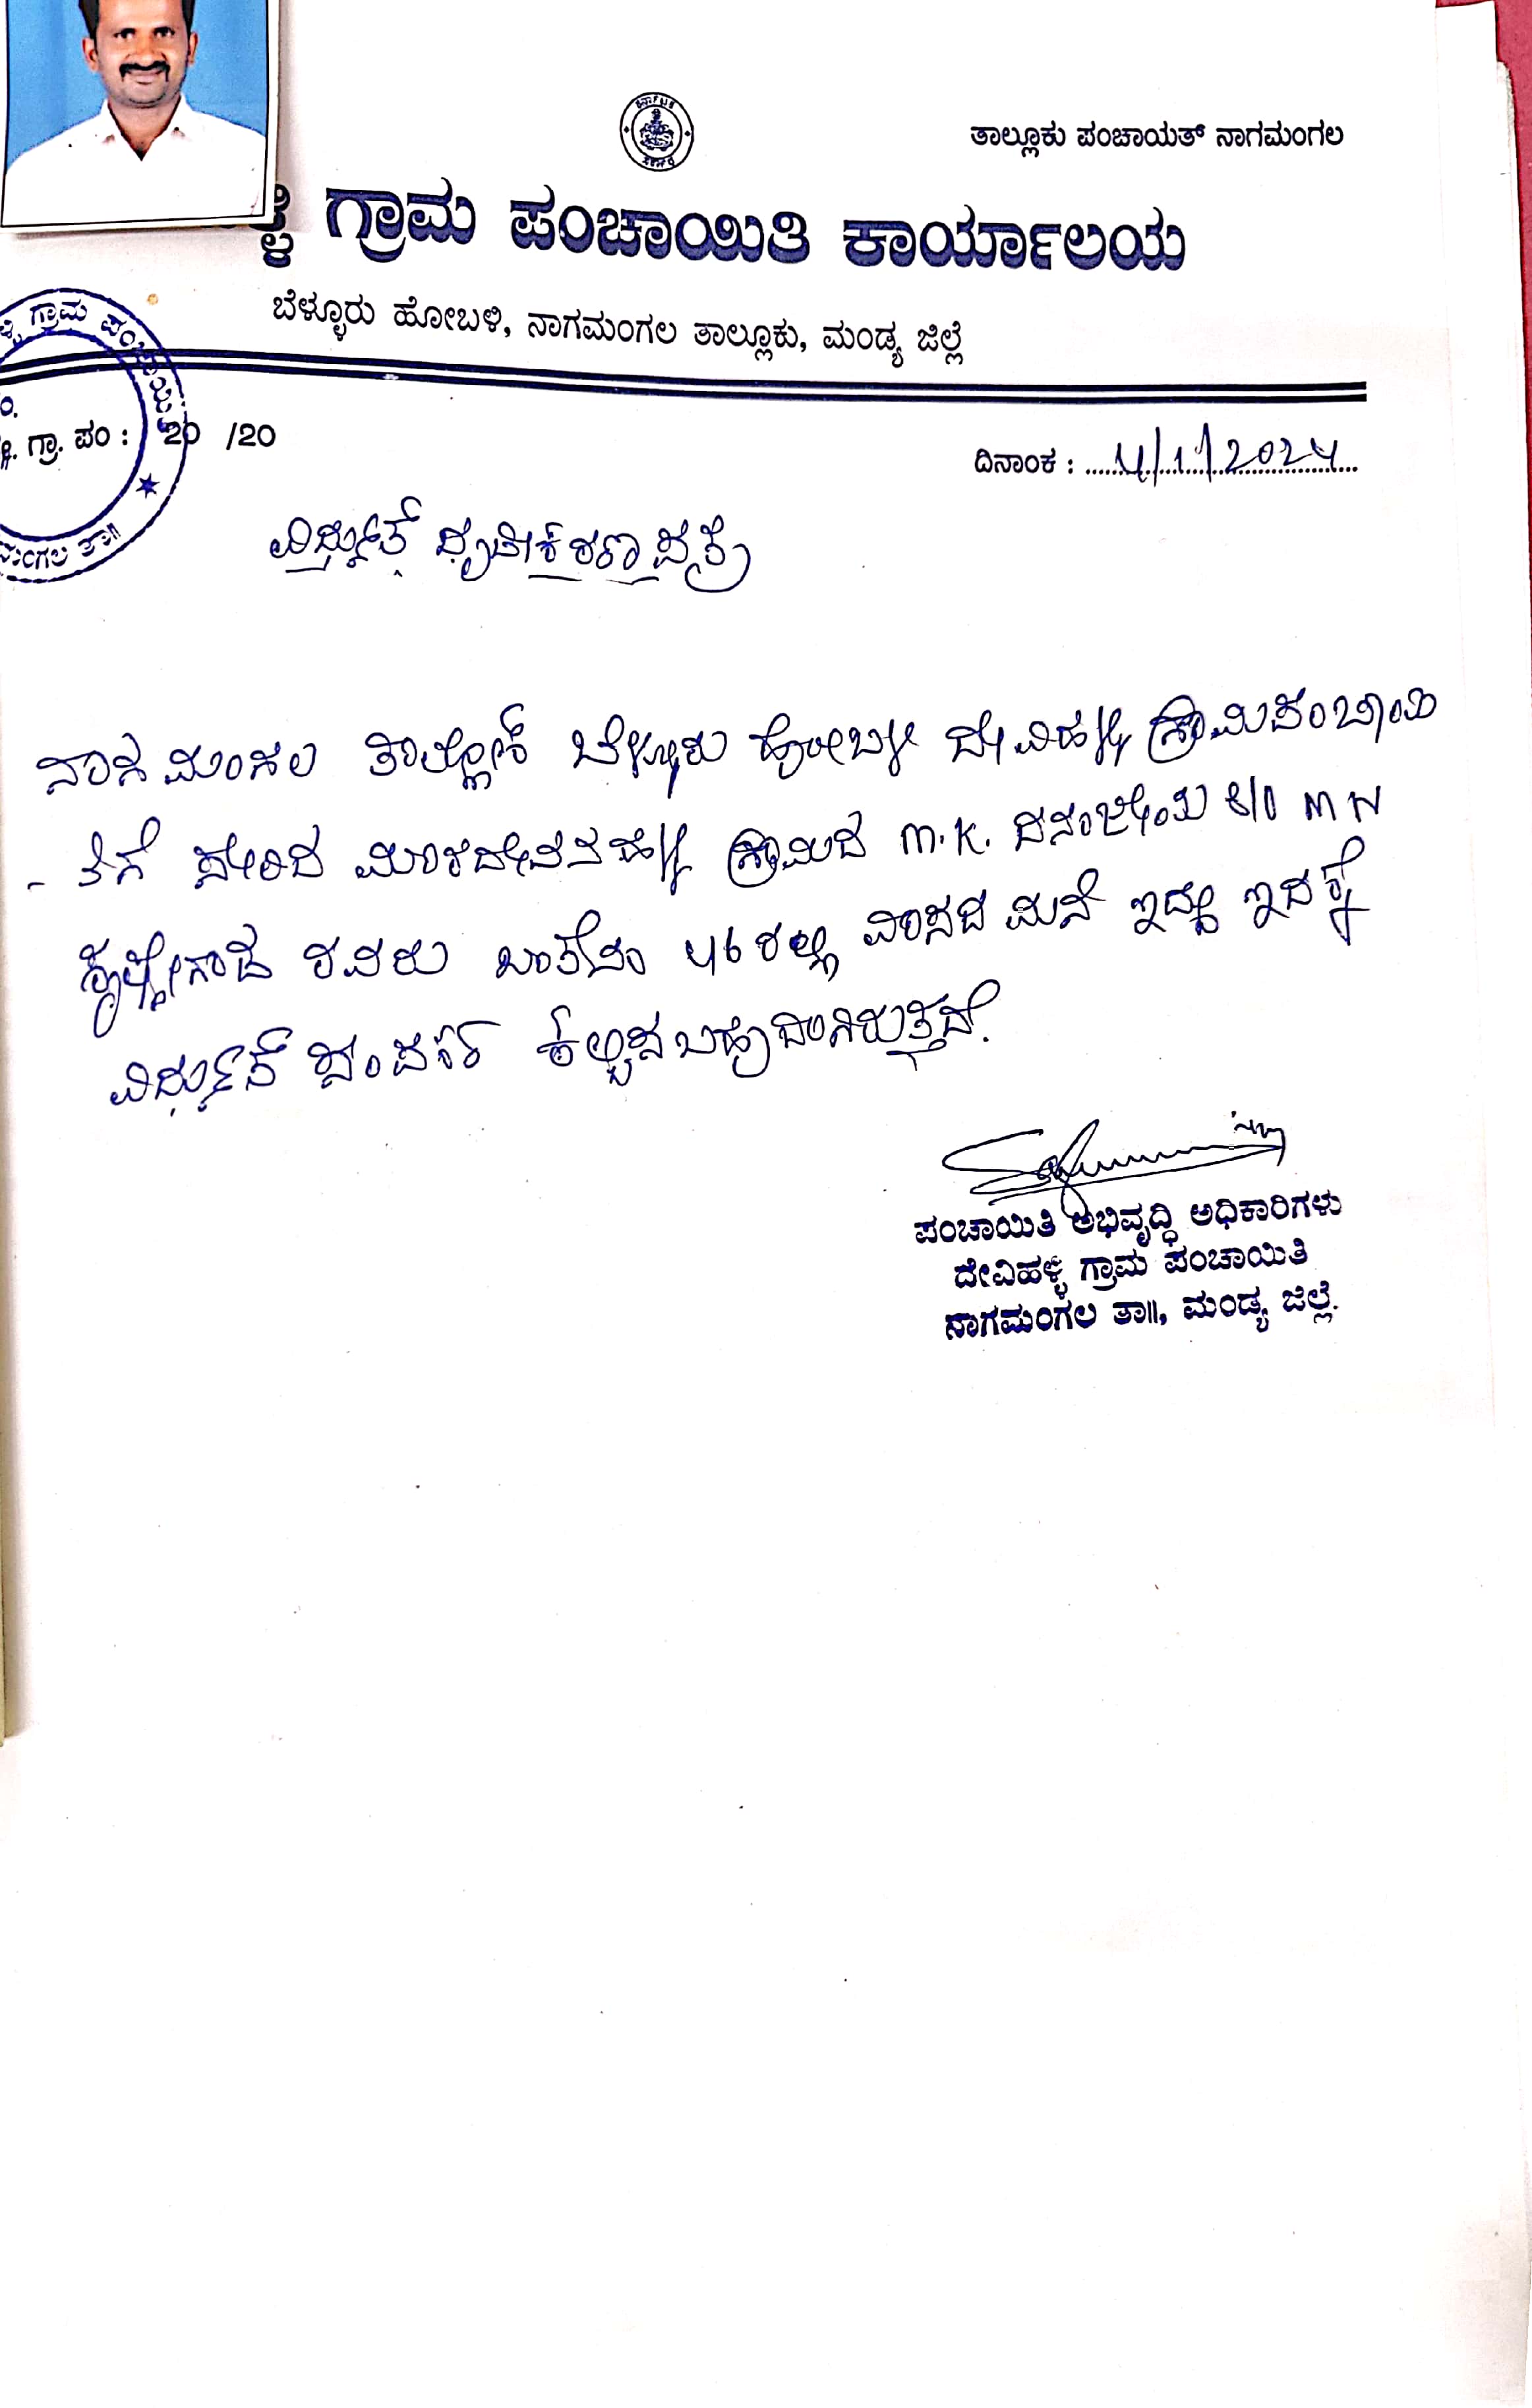 ತಾಲ್ಲೂಕು ಪಂಚಾಯತ್ ನಾಗಮಂಗಲ
ಳ್ಳಿ ಗ್ರಾಮ ಪಂಚಾಯಿತಿ ಕಾರ್ಯಾಲಯ
ಬೆಳ್ಳೂರು ಹೋಬಳಿ, ನಾಗಮಂಗಲ ತಾಲ್ಲೂಕು, ಮಂಡ್ಯ ಜಿಲ್ಲೆ
ಗ್ರಾಮ ಪಂಚಾಯ್ತಿ
ಗ್ರಾ. ಪಂ : 20 /20
ದಿನಾಂಕ : 4/1/2024
ಮಂಗಲ ತಾ॥
ವಿದ್ಯುತ್ ದೃಢೀಕರಣ ಪತ್ರ
ನಾಗಮಂಗಲ ತಾಲ್ಲೋಕ್ ಬೆಳ್ಳೂರು ಹೋಬಳಿ ದೇವಿಹಳ್ಳಿ ಗ್ರಾಮಪಂಚಾಯಿ
- ತಿಗೆ ಸೇರಿದ ಮಾರದೇವನಹಳ್ಳಿ ಗ್ರಾಮದ M.K. ಧನಂಜೇಯ S/O M N
ಕೃಷ್ಣೇಗೌಡ ರವರು ಖಾತೆನಂ 46 ರಲ್ಲಿ ವಾಸದ ಮನೆ ಇದ್ದು ಇದಕ್ಕೆ
ವಿದ್ಯುತ್ ಸಂಪರ್ಕ ಕಲ್ಪಿಸಬಹುದಾಗಿರುತ್ತದೆ.
ಪಂಚಾಯಿತಿ ಅಭಿವೃದ್ಧಿ ಅಧಿಕಾರಿಗಳು
ದೇವಿಹಳ್ಳಿ ಗ್ರಾಮ ಪಂಚಾಯಿತಿ
ನಾಗಮಂಗಲ ತಾ॥, ಮಂಡ್ಯ ಜಿಲ್ಲೆ.